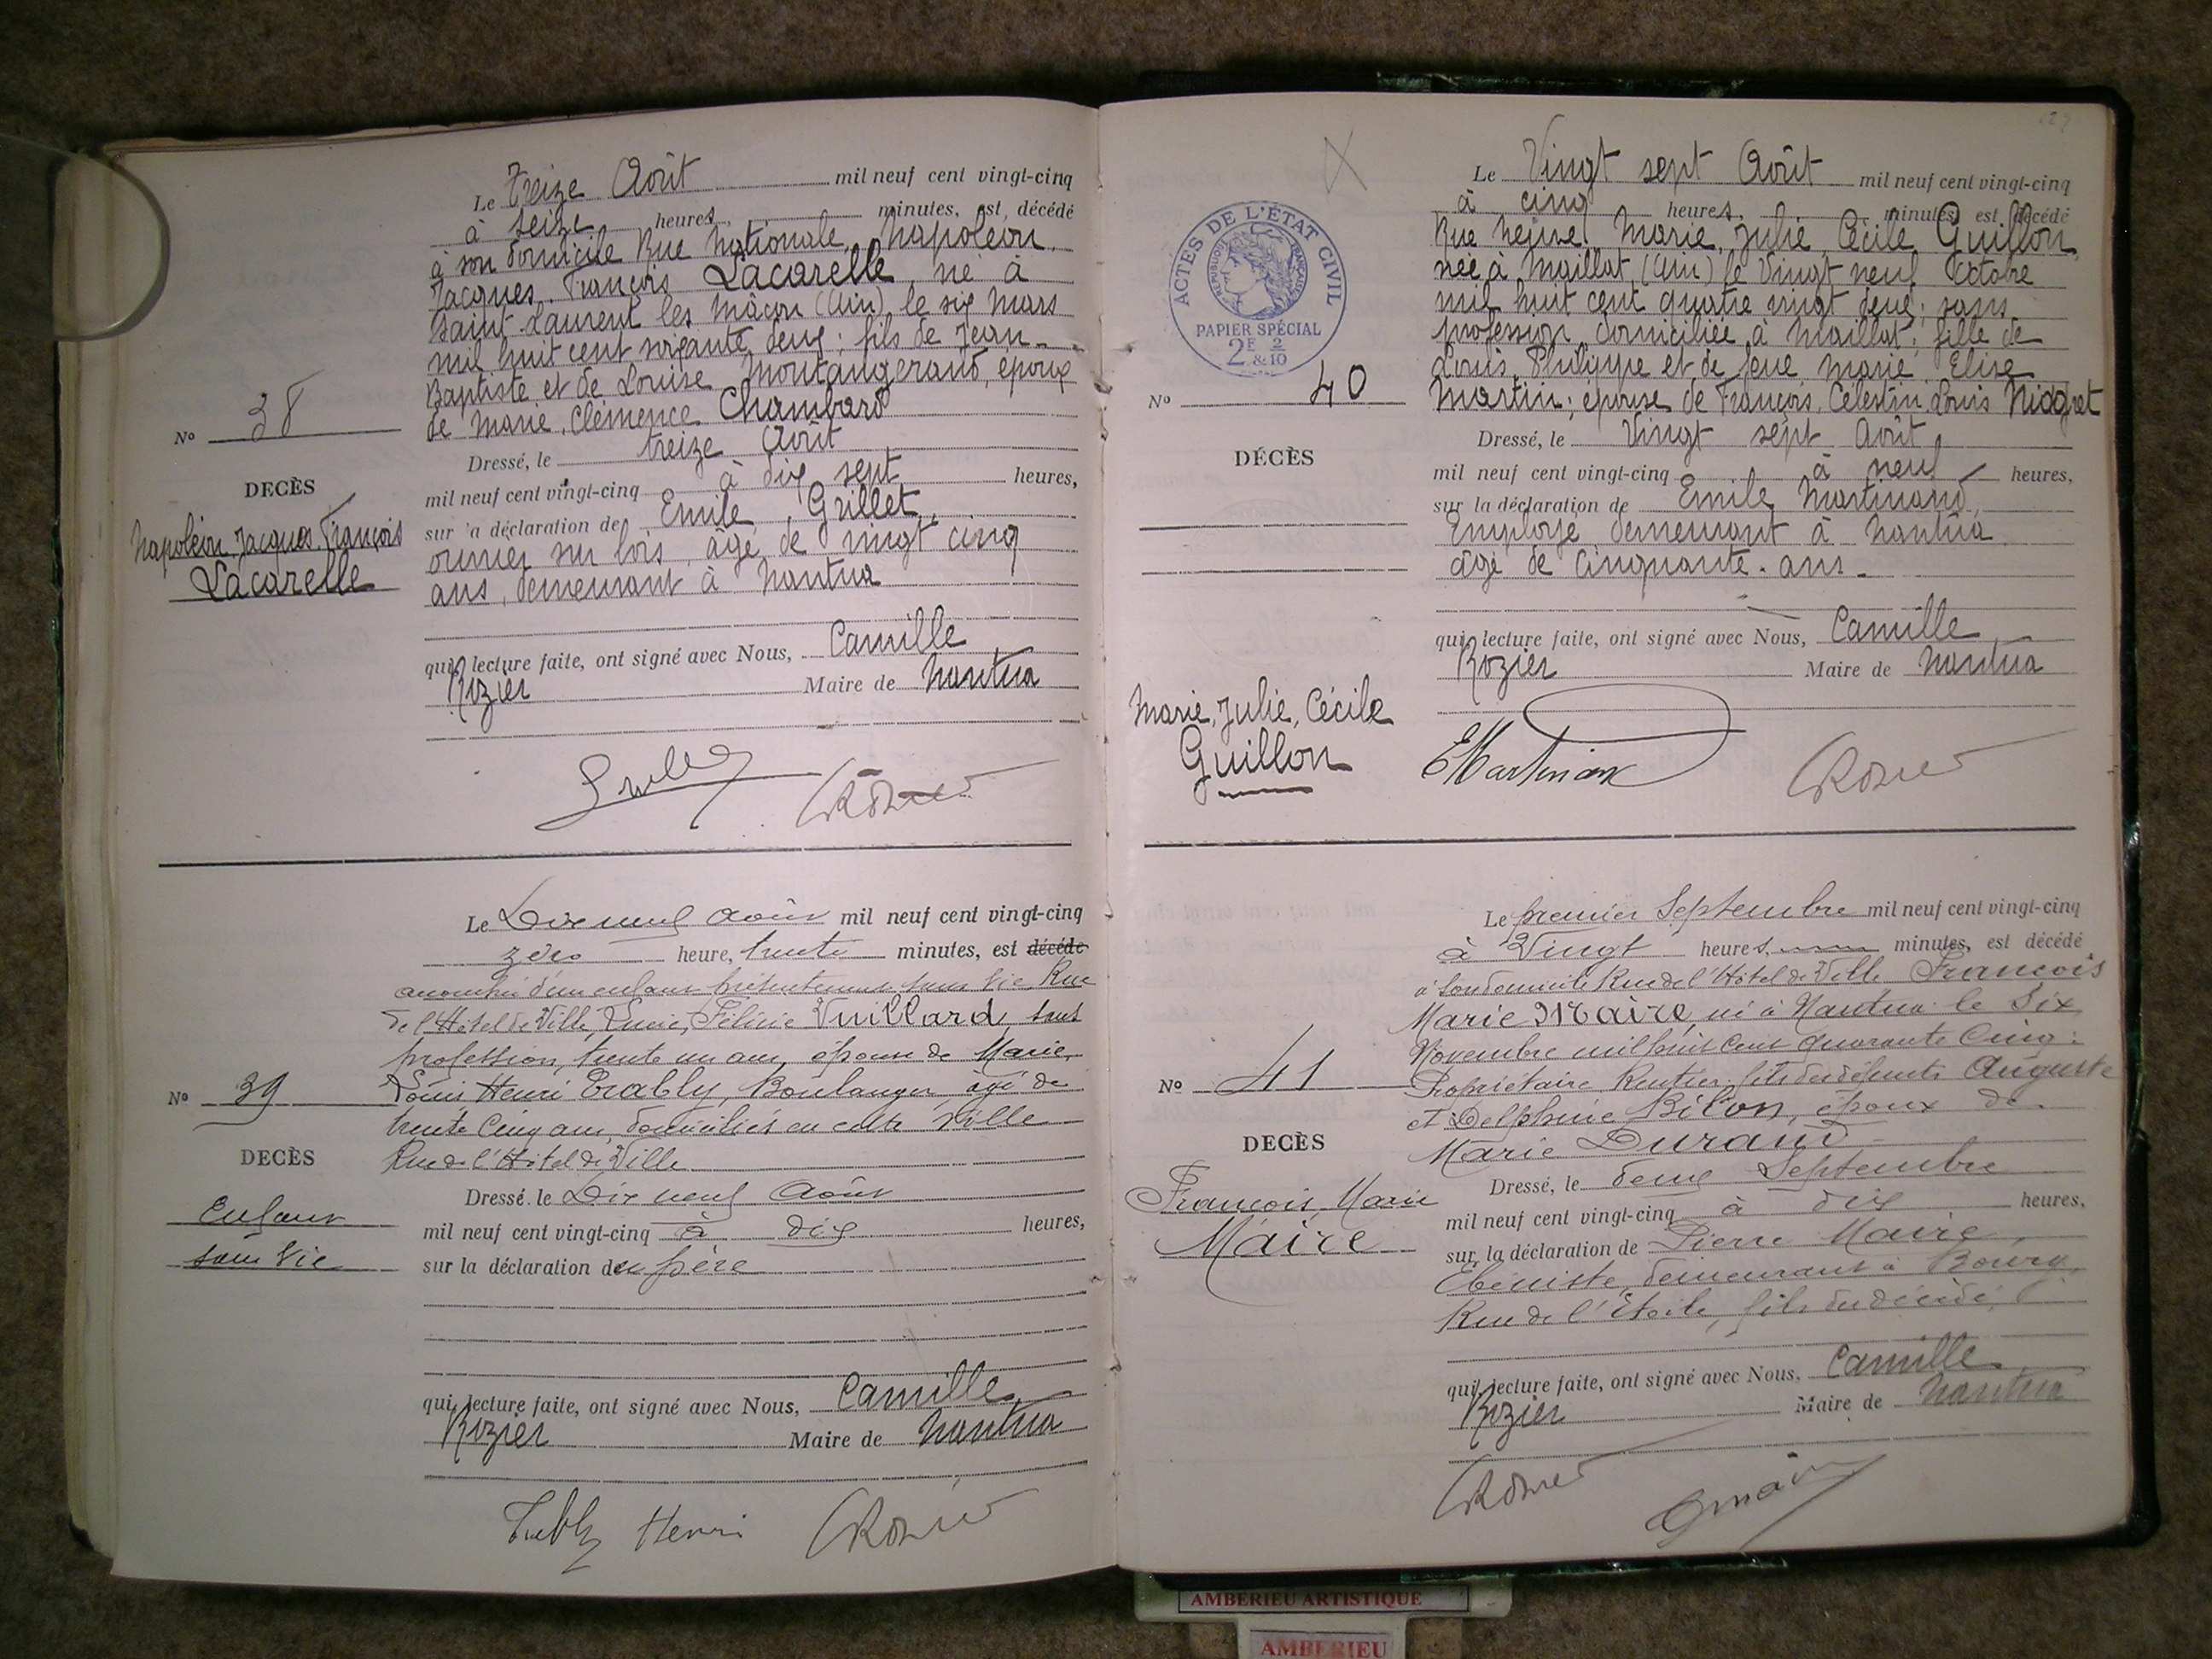 Le Treize Août mil neuf cent vingt-cinq
à seize heures, minutes, est décédé
à son domicile Rue Nationale, Napoléon,
Jacques, François Lacarelle, né à
Saint-Laurent les Mâcon (Ain) le six Mars
mil huit cent soixante deux; fils de Jean-
Baptiste et de Louise Montangerand, époux
de Marie, Clémence Chambard
Nº 38
DECÈS
Napoléon, Jacques, François
Lacarelle
Dressé, le treize Août
mil neuf cent vingt-cinq à dix sept heures,
sur la déclaration de Emile Grillet,
ouvrier sur bois, âgé de vingt cinq
ans, demeurant à Nantua
qui, lecture faite, ont signé avec Nous, Camille
Rozier Maire de Nantua
Le Dix neuf Août mil neuf cent vingt-cinq
zéro heure, trente minutes, est décédé
accouchée d'un enfant présentement sans vie Rue
de l'Hôtel de Ville, Félicie Vuillard, sans
profession, trente un ans, épouse de Marie,
Louis Henri Trably, Boulanger, âgé de
trente cinq ans, domiciliés en cette Ville
Rue de l'Hôtel de Ville
Nº 39
DECÈS
Enfant
sans Vie
Dressé, le Dix neuf Août
mil neuf cent vingt-cinq à dix heures,
sur la déclaration du père
qui, lecture faite, ont signé avec Nous, Camille
Rozier Maire de Nantua
Trably Henri CRozier
ACTES DE L'ÉTAT CIVIL
RÉPUBLIQUE FRANÇAISE
PAPIER SPÉCIAL
2E 2 & 10
Le Vingt sept Août mil neuf cent vingt-cinq
à cinq heures, minutes, est décédé
Rue Neuve, Marie, Julie, Cécile Guillon,
née à Maillat (Ain) le Vingt neuf Octobre
mil huit cent quatre vingt deux; sans
profession, domiciliée à Maillat; fille de
Louis, Philippe et de feue Marie, Elise
Martin; épouse de François, Célestin, Louis Niogret
Nº 40
DÉCÈS
Marie, Julie, Cécile
Guillon
Dressé, le Vingt sept Août
mil neuf cent vingt-cinq à neuf heures,
sur la déclaration de Emile Martinand,
Employé, demeurant à Nantua
âgé de Cinquante-ans-
qui, lecture faite, ont signé avec Nous, Camille
Rozier Maire de Nantua
EMartinan CRozier
Le premier Septembre mil neuf cent vingt-cinq
à Vingt heures, minutes, est décédé
à son domicile Rue de l'Hôtel de Ville François
Marie Maire, né à Nantua le Six
Novembre mil huit cent quarante Cinq:
Propriétaire Rentier, fils des défunts Auguste
et Delphine Bilon, époux de
Marie Durand
Nº 41
DECÈS
François, Marie
Maire
Dressé, le deux Septembre
mil neuf cent vingt-cinq à dix heures,
sur la déclaration de Pierre Maire,
Ebéniste, demeurant à Bourg,
Rue de l'Etoile, fils du décédé
qui, lecture faite, ont signé avec Nous, Camille
Rozier Maire de Nantua
CRozier
AMBERIEU ARTISTIQUE
AMBERIEU